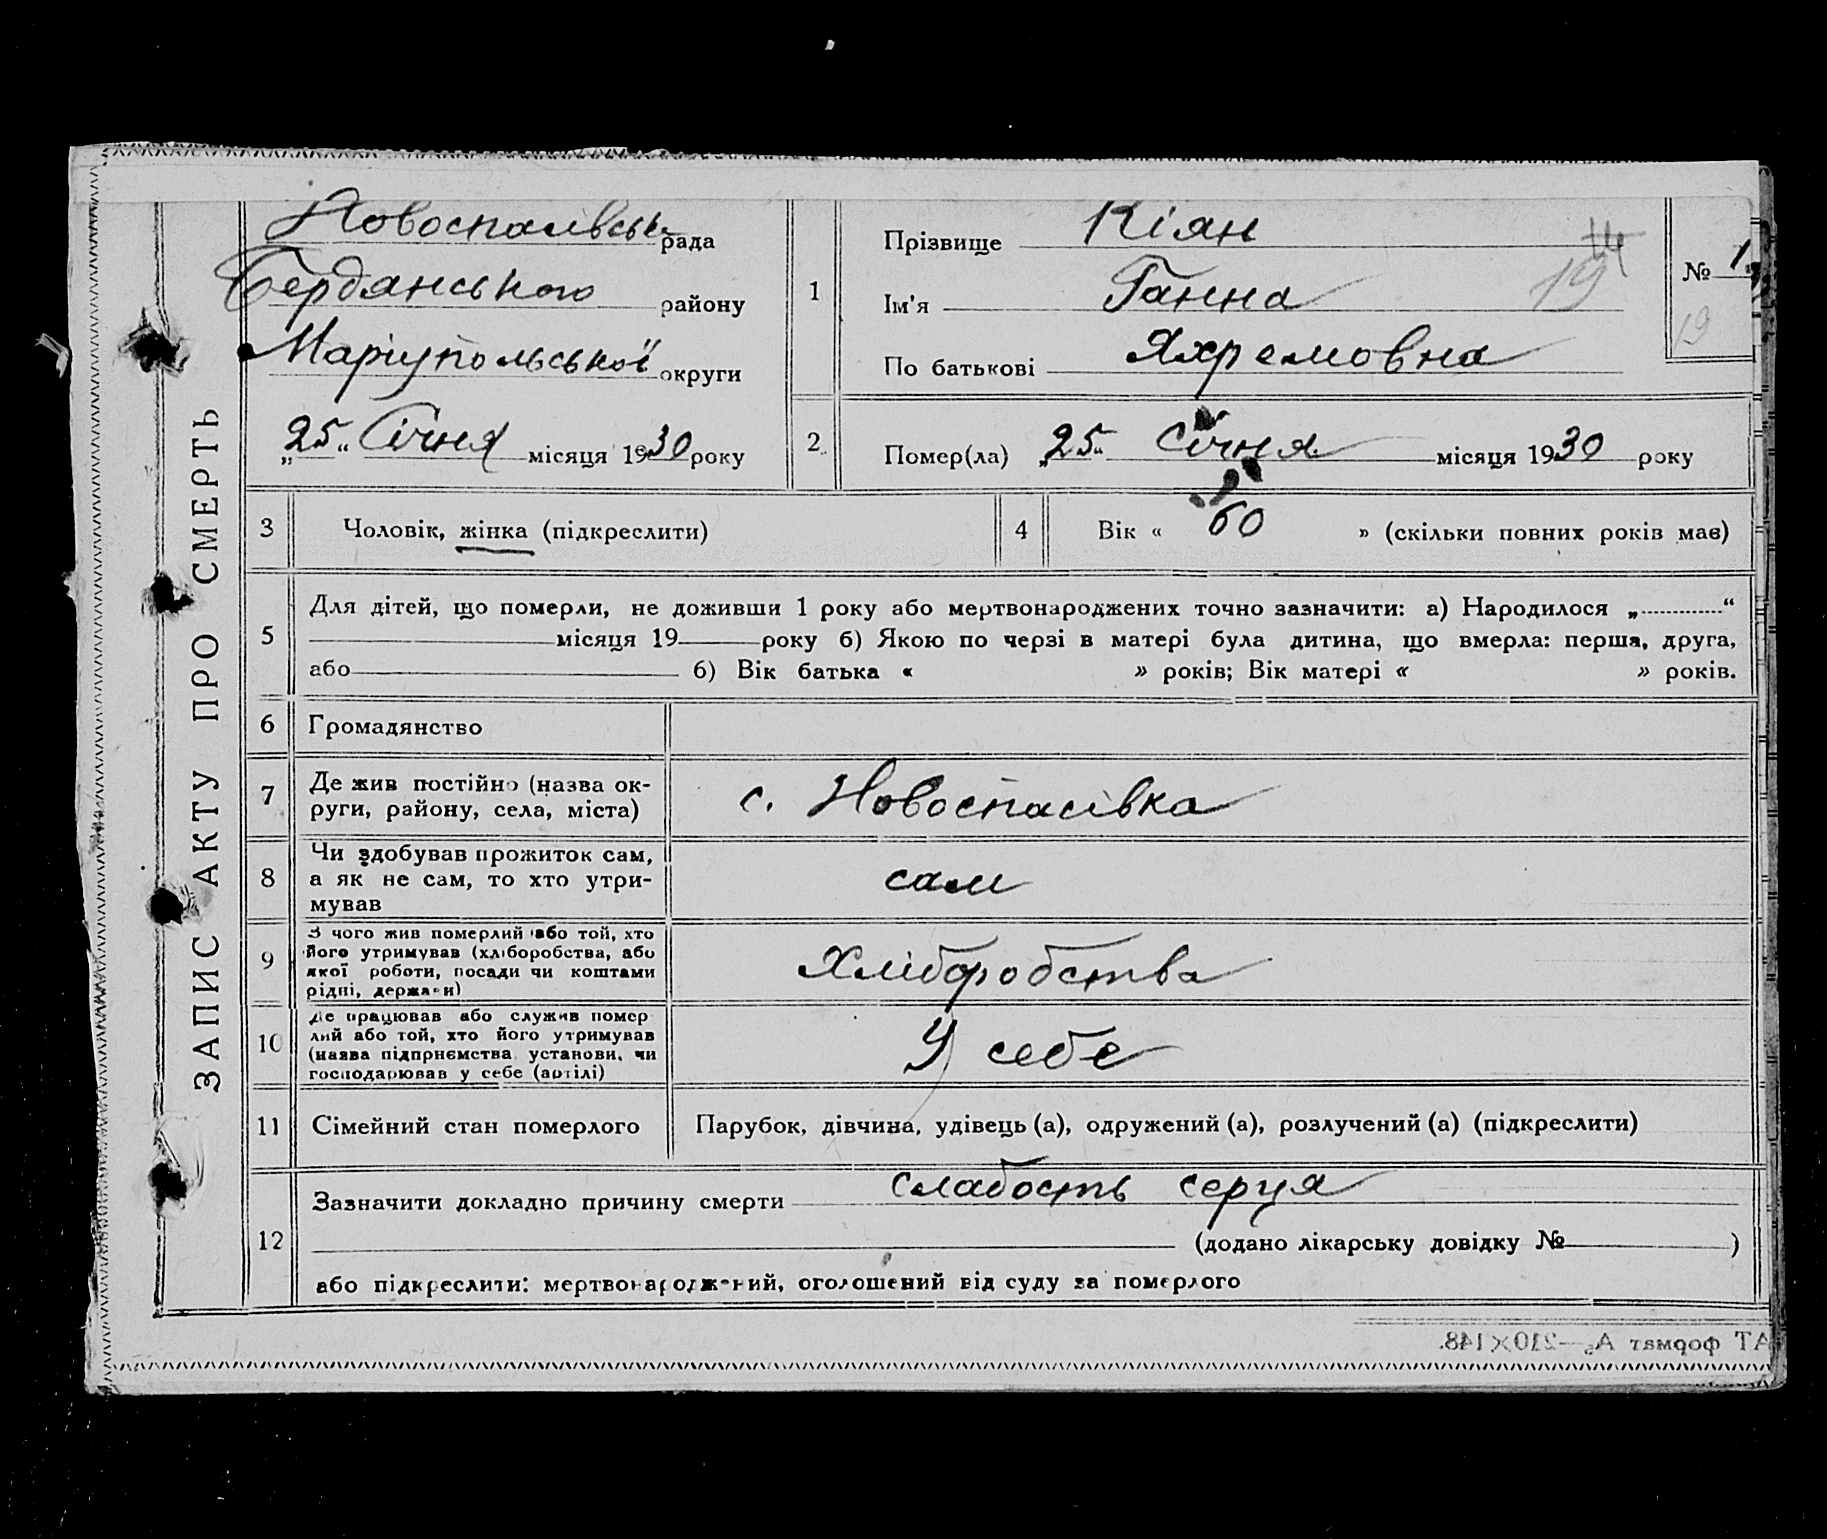 ЗАПИС АКТУ ПРО СМЕРТЬ
Новоспасівська рада
Бердянського району
Маріупольської округи
„25“ Січня місяця 1930 року
1
Прізвище Кіян
Ім'я Ганна
По батькові Яхремовна
14
19
№ 1
19
2
Помер(ла) „25“ Січня місяця 1930 року
3 Чоловік, жінка (підкреслити)
4 Вік « 60 » (скільки повних років має)
5
Для дітей, що померли, не доживши 1 року або мертвонароджених точно зазначити: а) Народилося „ “
місяця 19 року б) Якою по черзі в матері була дитина, що вмерла: перша, друга,
або 6) Вік батька « » років; Вік матері « » років.
6 Громадянство
7
Де жив постійно (назва ок-
руги, району, села, міста)
с. Новоспасівка
8
Чи здобував прожиток сам,
а як не сам, то хто утри-
мував
сам
9
З чого жив померлий або той, хто
його утримував (хліборобства, або
якої роботи, посади чи коштами
рідні, держави)
Хліборобства
10
Де працював або служив помер
лий або той, хто його утримував
(назва підприємства, установи, чи
господарював у себе (артілі)
У себе
11 Сімейний стан померлого
Парубок, дівчина, удівець (а), одружений (а), розлучений (а) (підкреслити)
12
Зазначити докладно причину смерти слабость серця
(додано лікарську довідку № )
або підкреслити: мертвонароджений, оголошений від суду за померлого
АТ формат А₅—210×148.